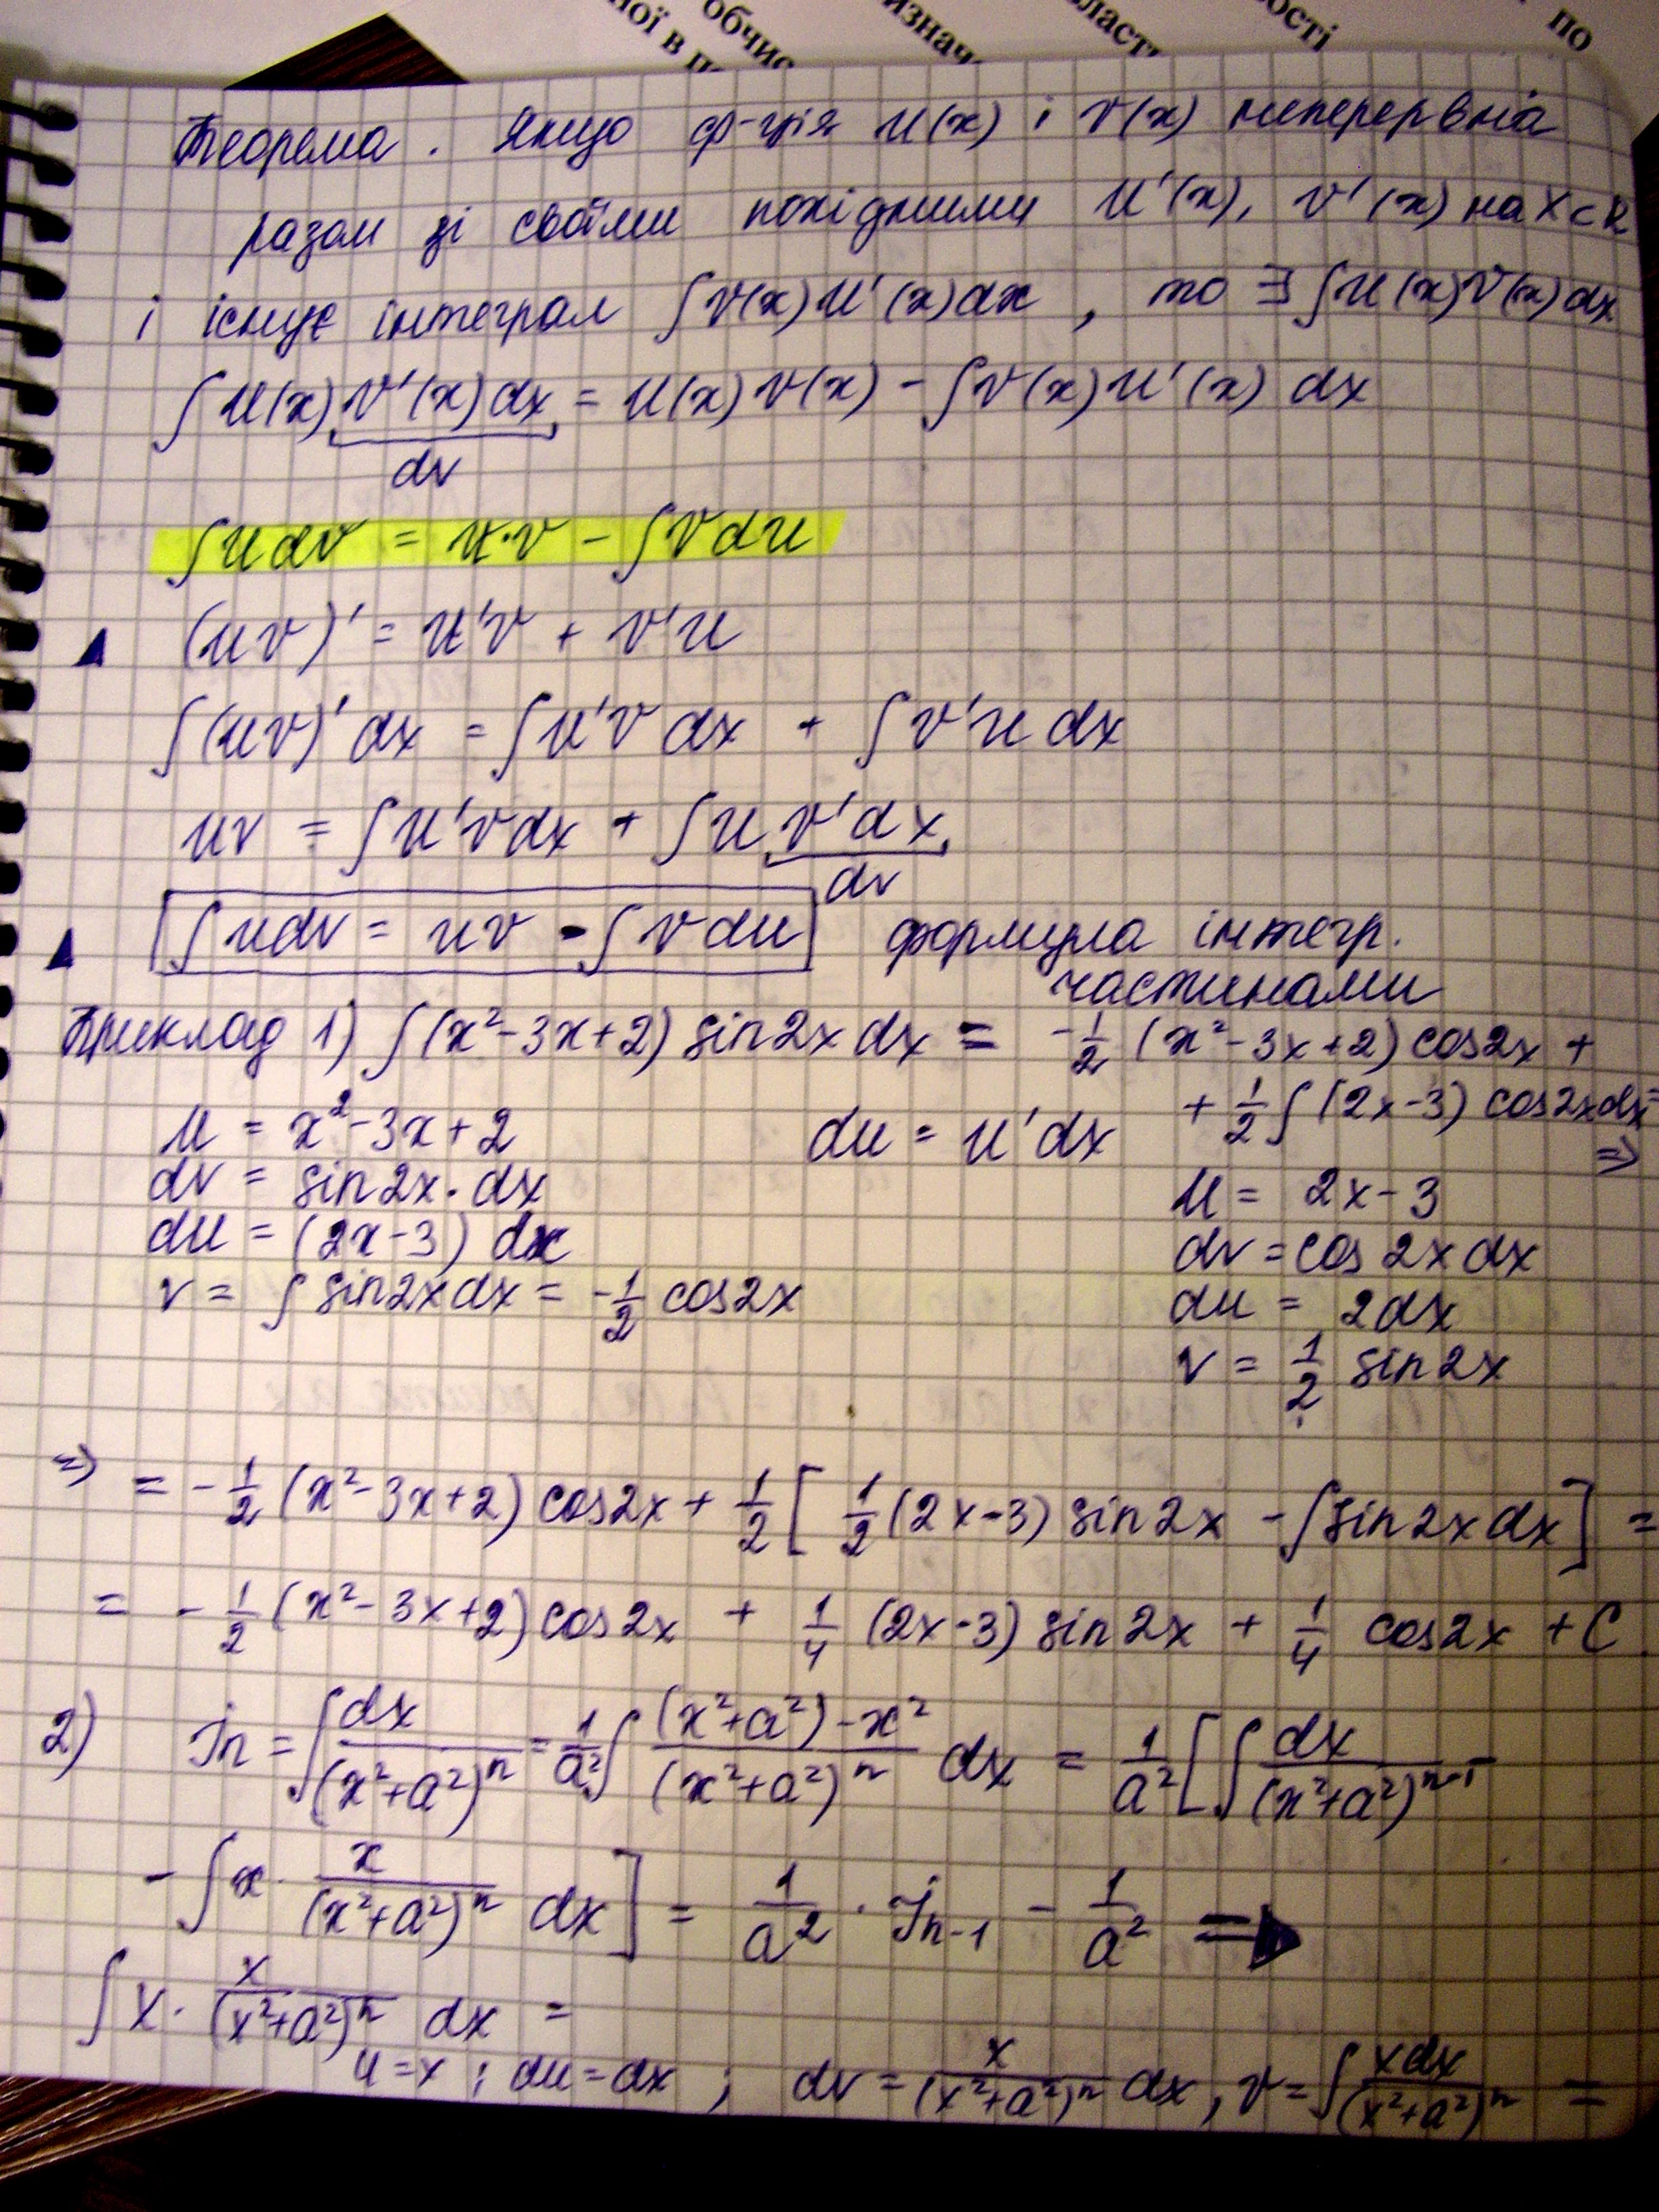 ної в п
обчис
изнач
ласт
ості
по
Теорема. Якщо ф-ція u(x) і v(x) неперервна
разом зі своїми похідними u'(x), v'(x) на X⊂R
і існує інтеграл ∫v(x)u'(x)dx, то ∃∫u(x)v'(x)dx
∫u(x)v'(x)dx = u(x)v(x) - ∫v(x)u'(x) dx
dv
∫udv = u·v - ∫vdu
(uv)' = u'v + v'u
∫(uv)'dx = ∫u'v dx + ∫v'u dx
uv = ∫u'vdx + ∫u v'dx
dv
∫udv = uv - ∫vdu формула інтегр.
частинами
Приклад 1) ∫(x²-3x+2) sin2x dx = -1/2 (x²-3x+2) cos2x +
+ 1/2 ∫(2x-3) cos2xdx =
⇒
u = x²-3x+2 du = u'dx
dv = sin2x·dx
du = (2x-3) dx
v = ∫sin2xdx = -1/2 cos2x
u = 2x-3
dv = cos 2x dx
du = 2dx
v = 1/2 sin2x
⇒ = -1/2 (x²-3x+2) cos2x + 1/2 [1/2 (2x-3) sin2x - ∫sin2x dx] =
= -1/2 (x²-3x+2) cos2x + 1/4 (2x-3) sin2x + 1/4 cos2x + C
2) Jn = ∫dx/(x²+a²)ⁿ = 1/a² ∫((x²+a²)-x²)/(x²+a²)ⁿ dx = 1/a² [∫dx/(x²+a²)ⁿ⁻¹ -
- ∫x· x/(x²+a²)ⁿ dx] = 1/a² · Jn-1 - 1/a² ⇒
∫x· x/(x²+a²)ⁿ dx =
u=x ; du=dx ; dv = x/(x²+a²)ⁿ dx, v = ∫xdx/(x²+a²)ⁿ =